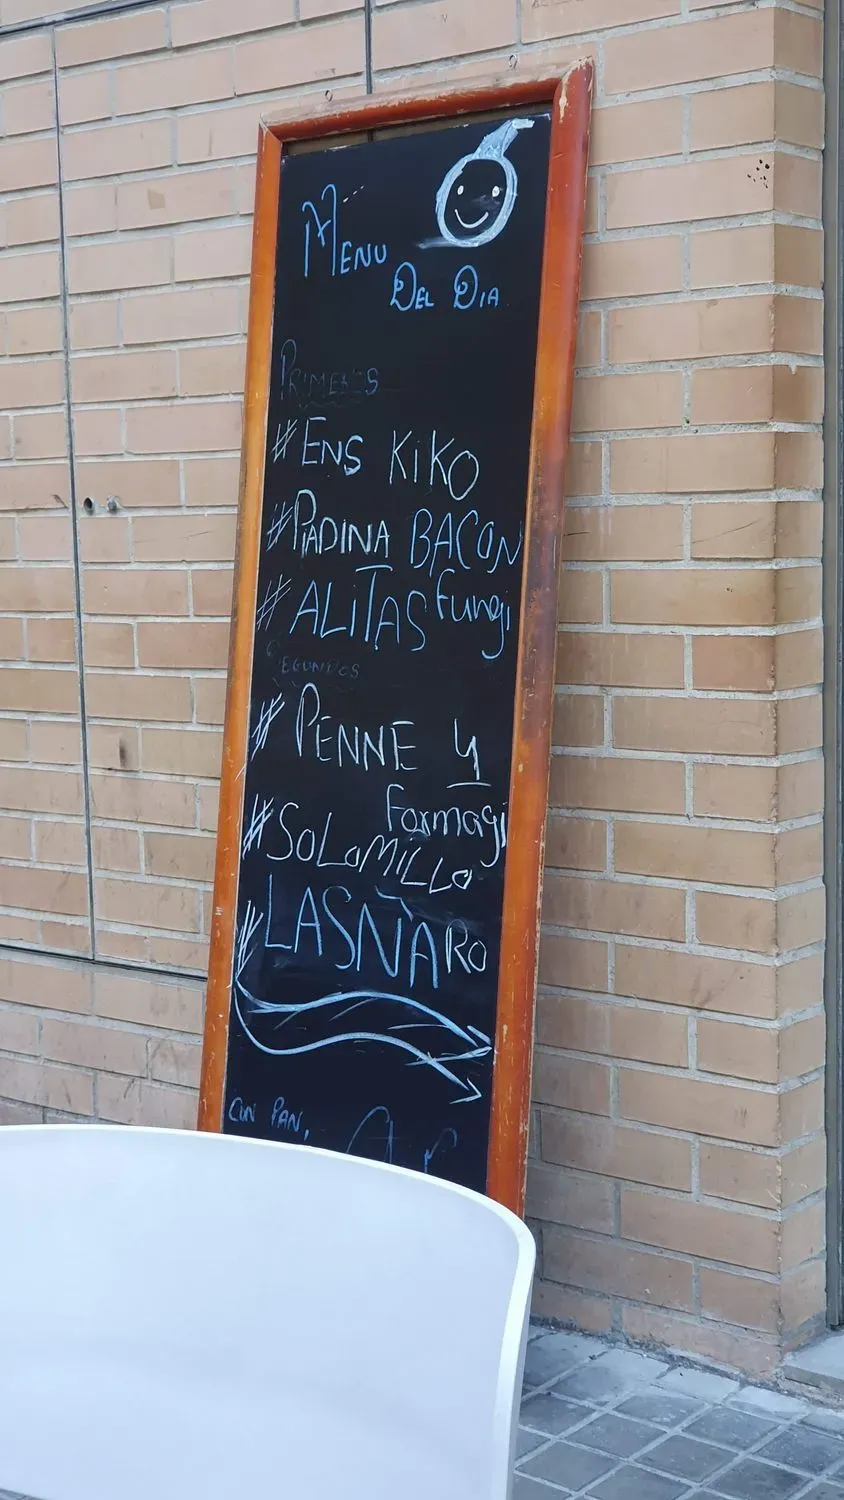 MENU
DEL DIA
PRIMEROS
#ENS KIKO
#PIADINA BACON
#ALITAS Fungi
SEGUNDOS
#PENNE 4
Formagi
#SOLOMILLO
#LASÑARO
CON PAN,